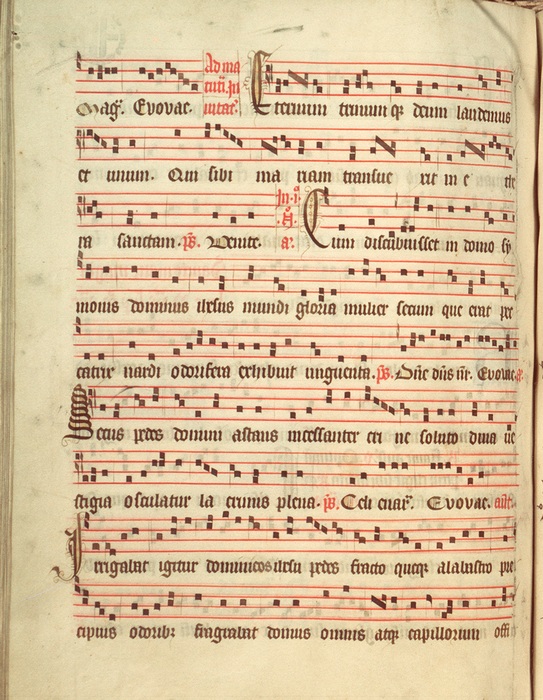 Mag. Evovae. Ad ma tuti. In vitat. Eternum trinumq deum laudemus
et unum. Qui sibi ma riam transtue rit in e the
ra sanctam. ps. Venite. In .i. .N. a. Cum discubuisset in domo sy
monis dominus ihesus mundi gloria mulier secum que erat pec
catrix nardi odorifera exhibuit unguenta. ps. Dne dns nr. Evovae. a.
Secus pedes domini astans incessanter et ne soluto divina ve
stigia osculatur la crimis plena. ps. Celi enar. Evovae. ant.
Irrigabat igitur dominicos ihesu pedes fracto queqz alabastro pre
cipuis odoribz fragrabat domus omnis atqz capillorum offi